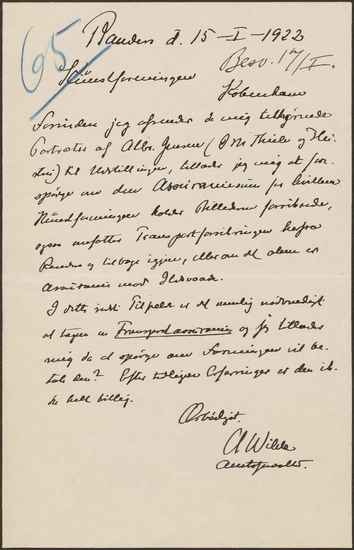 65
Randers d. 15-I-1922
Besv. 17/I.
Kunstforeningen
København
Forinden jeg afsender de mig tilhørende
Portræter af Albr. Jensen (J M Thiele og Hei-
) til Udstillingen, tillader jeg mig at for-
spørge om den Assurancesum for hvilken
Kunstforeningen holder Billederne forsikrede,
ogsaa omfatter Transportforsikringen herfra
Randers og tilbage igjen, eller om det alene er
Assurance mod Ildsvaade.
I dette sidste Tilfælde er det nemlig nødvendigt
at tegne en Transportassurance og jeg tillader
mig da at spørge om Foreningen vil be-
tale den? Efter tidligere Erfaringer er den ik-
ke helt billig.
Ærbødigst
A Wilde